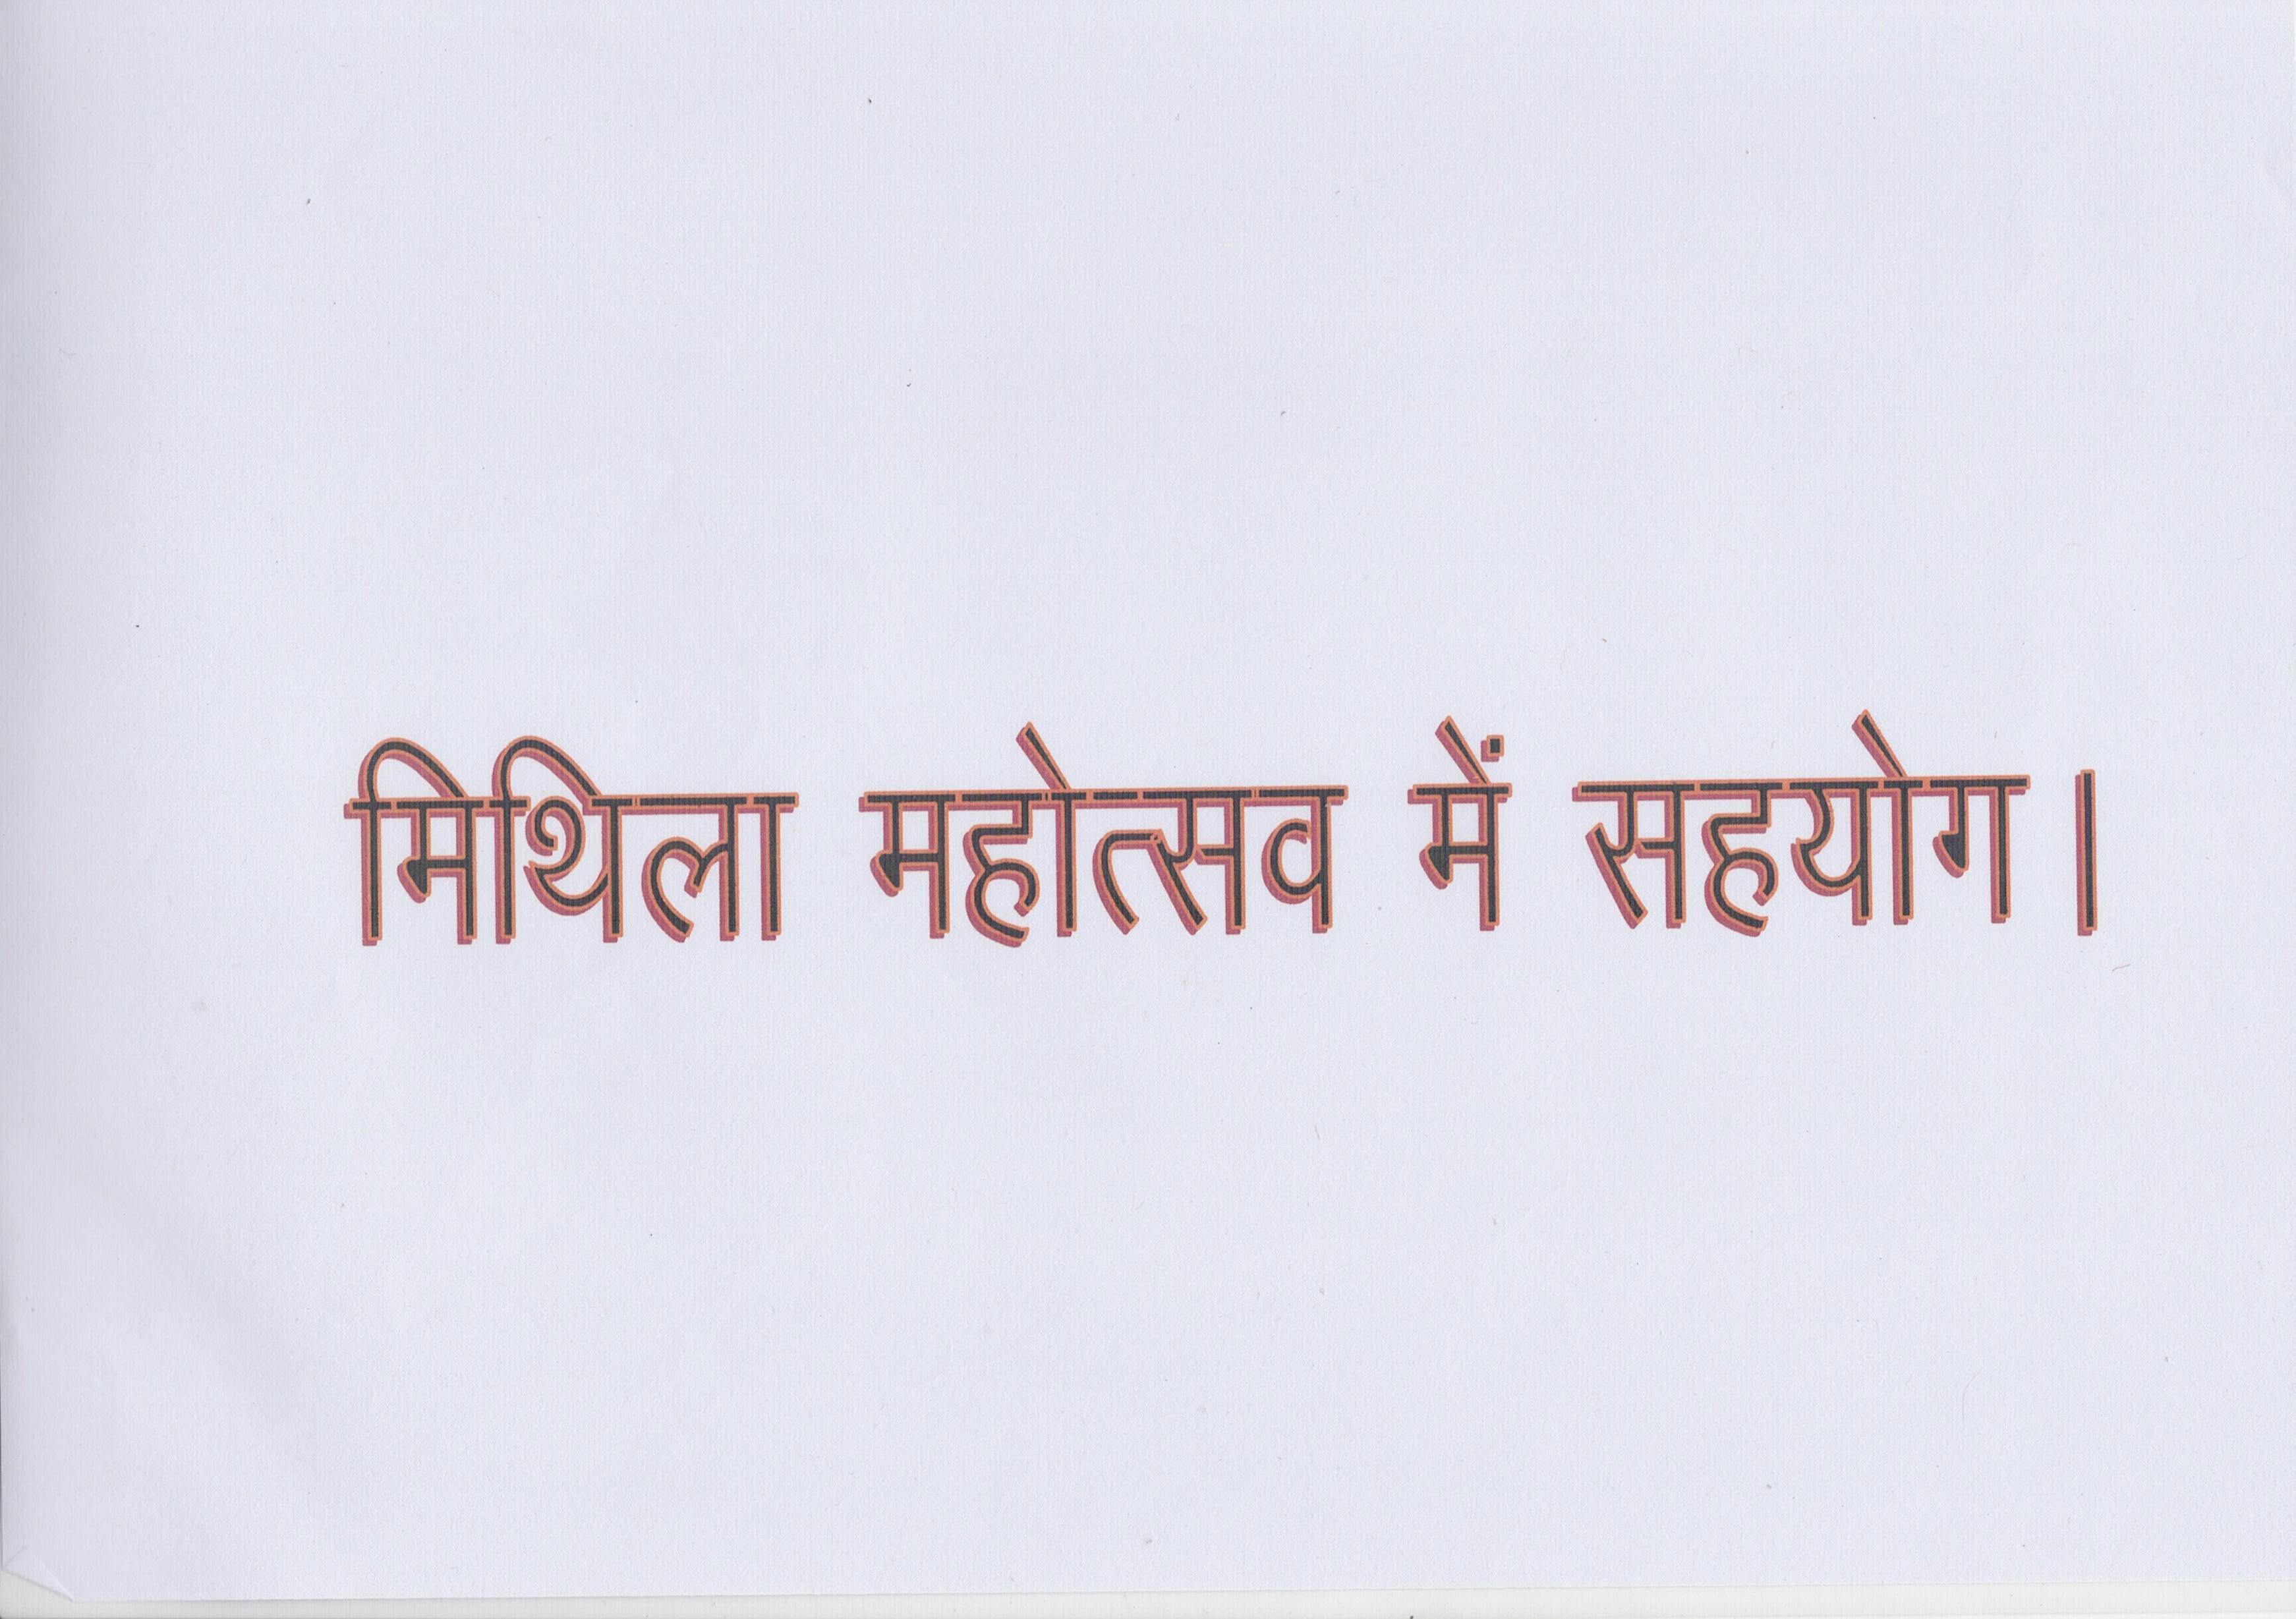 मिथिला महोत्सव में सहयोग।